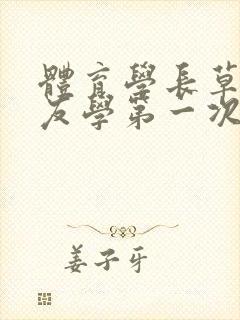 體育學長草
友學第一次
姜子牙